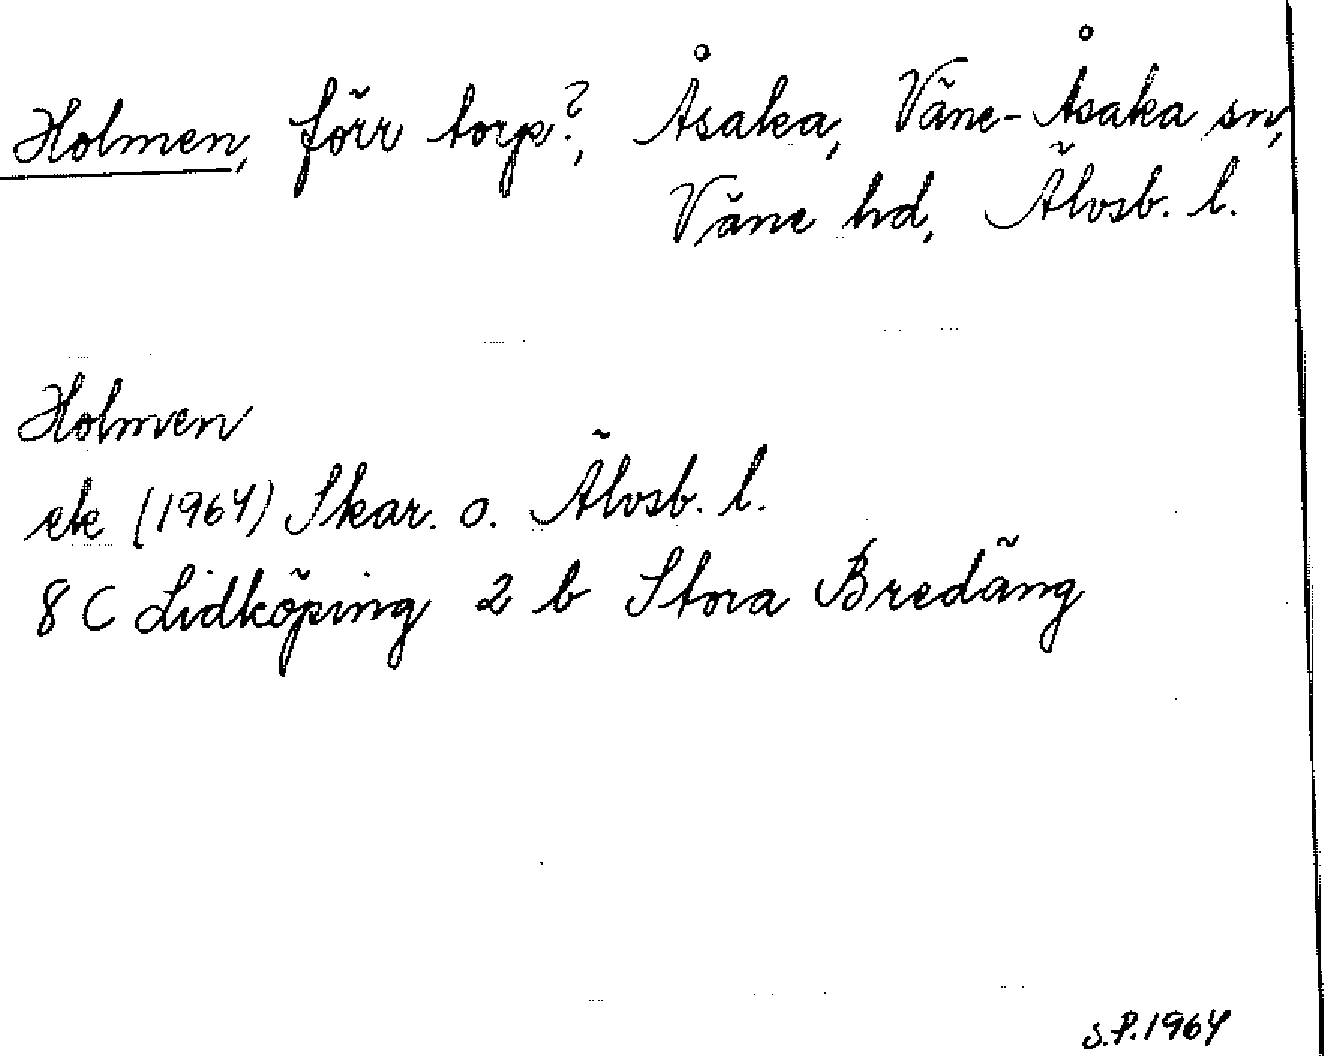 Holmen, förr torp?, Åsaka, Väne-Åsaka sn,
Väne hd, Älvsb. l.
Holmen
ek (1964) Skar. o. Älvsb. l.
8 C Lidköping 2 b Stora Bredäng
S.P. 1964